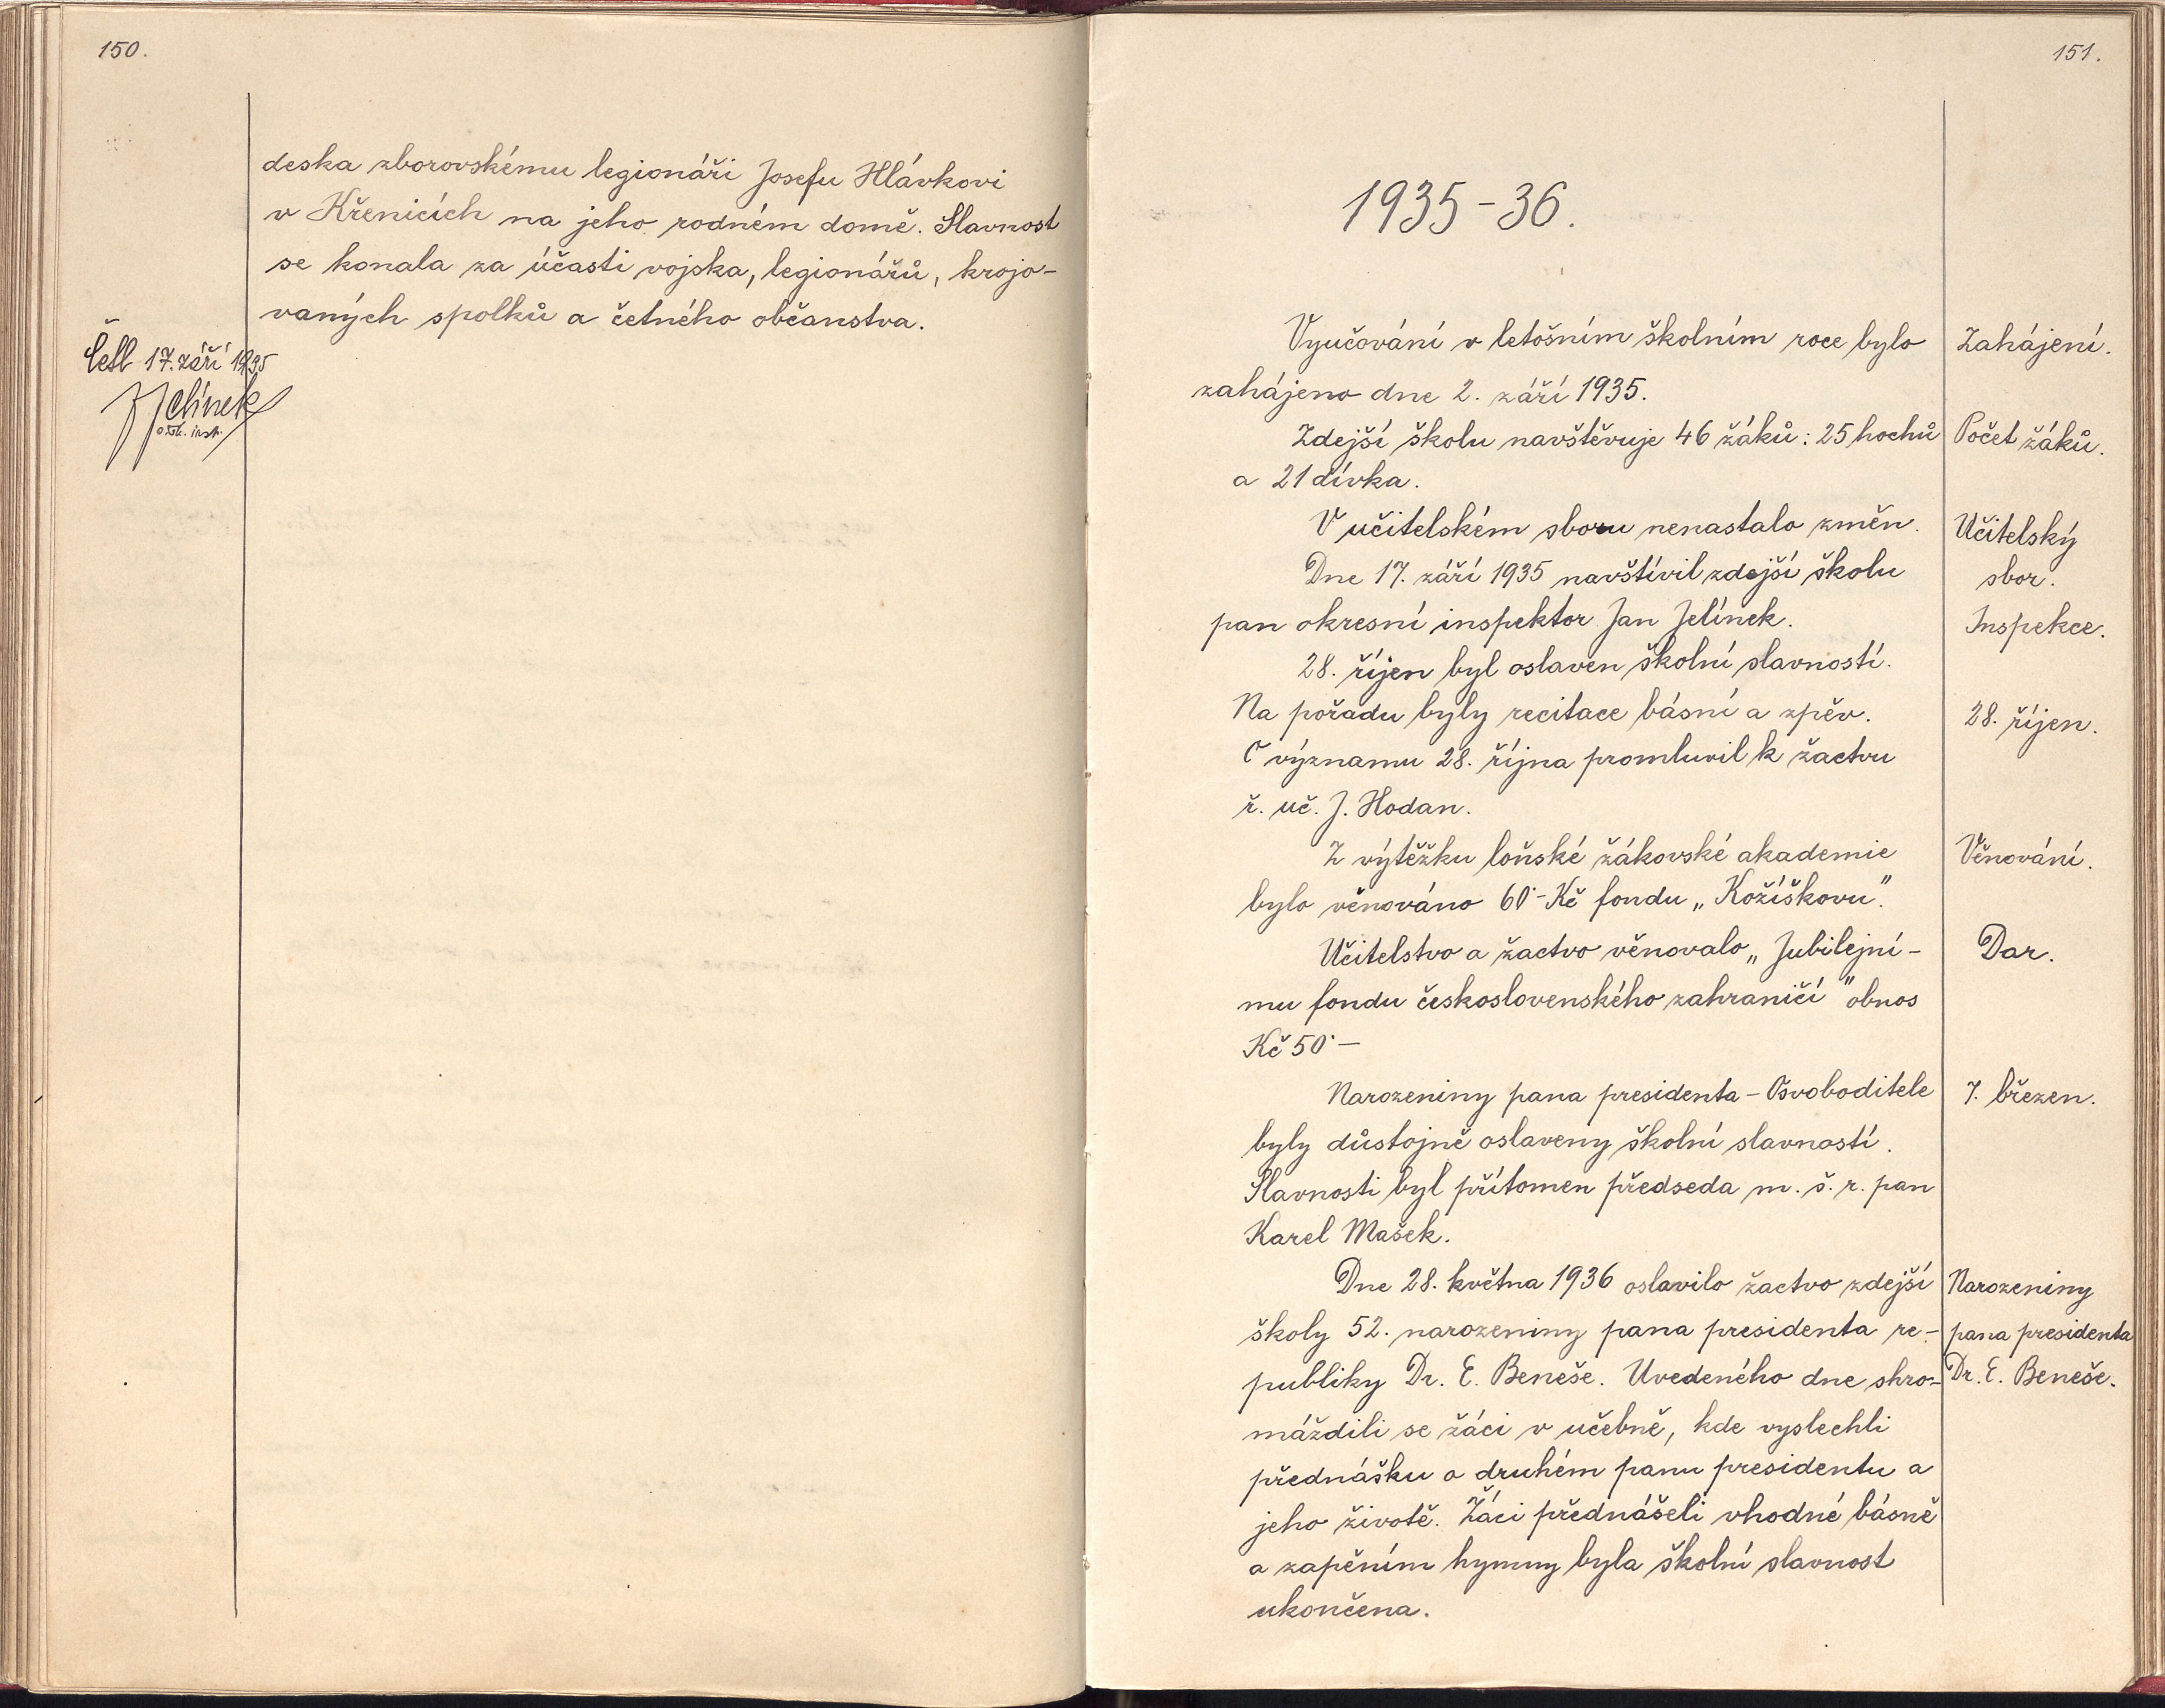 150.
deska zborovskému legionáři Josefu Hlávkovi
v Křenicích na jeho rodném domě. Slavnost
se konala za účasti vojska, legionářů, krojo-
vaných spolků a četného občanstva.
Četl 17. září 1935
JJelínek
o. šk. insp.
151.
1935-36.
Vyučování v letošním školním roce bylo
zahájeno dne 2. září 1935.
Zahájení.
Zdejší školu navštěvuje 46 žáků: 25 hochů
a 21 dívka.
Počet žáků.
V učitelském sboru nenastalo změn.
Učitelský
sbor.
Dne 17. září 1935 navštívil zdejší školu
pan okresní inspektor Jan Jelínek.
Inspekce.
28. říjen byl oslaven školní slavností.
Na pořadu byly recitace básní a zpěv.
28. říjen.
O významu 28. října promluvil k žactvu
ř. uč. J. Hodan.
Z výtěžku loňské žákovské akademie
bylo věnováno 60·- Kč fondu „Kožíškovu".
Věnování.
Učitelstvo a žactvo věnovalo „Jubilejní-
mu fondu československého zahraničí" obnos
Kč 50·—
Dar.
Narozeniny pana presidenta - Osvoboditele
byly důstojně oslaveny školní slavností.
7. březen.
Slavnosti byl přítomen předseda m. š. r. pan
Karel Mašek.
Dne 28. května 1936 oslavilo žactvo zdejší
školy 52. narozeniny pana presidenta re-
publiky Dr. E. Beneše. Uvedeného dne shro-
Narozeniny
pana presidenta
Dr. E. Beneše.
máždili se žáci v učebně, kde vyslechli
přednášku o druhém panu presidentu a
jeho životě. Žáci přednášeli vhodné básně
a zapěním hymny byla školní slavnost
ukončena.